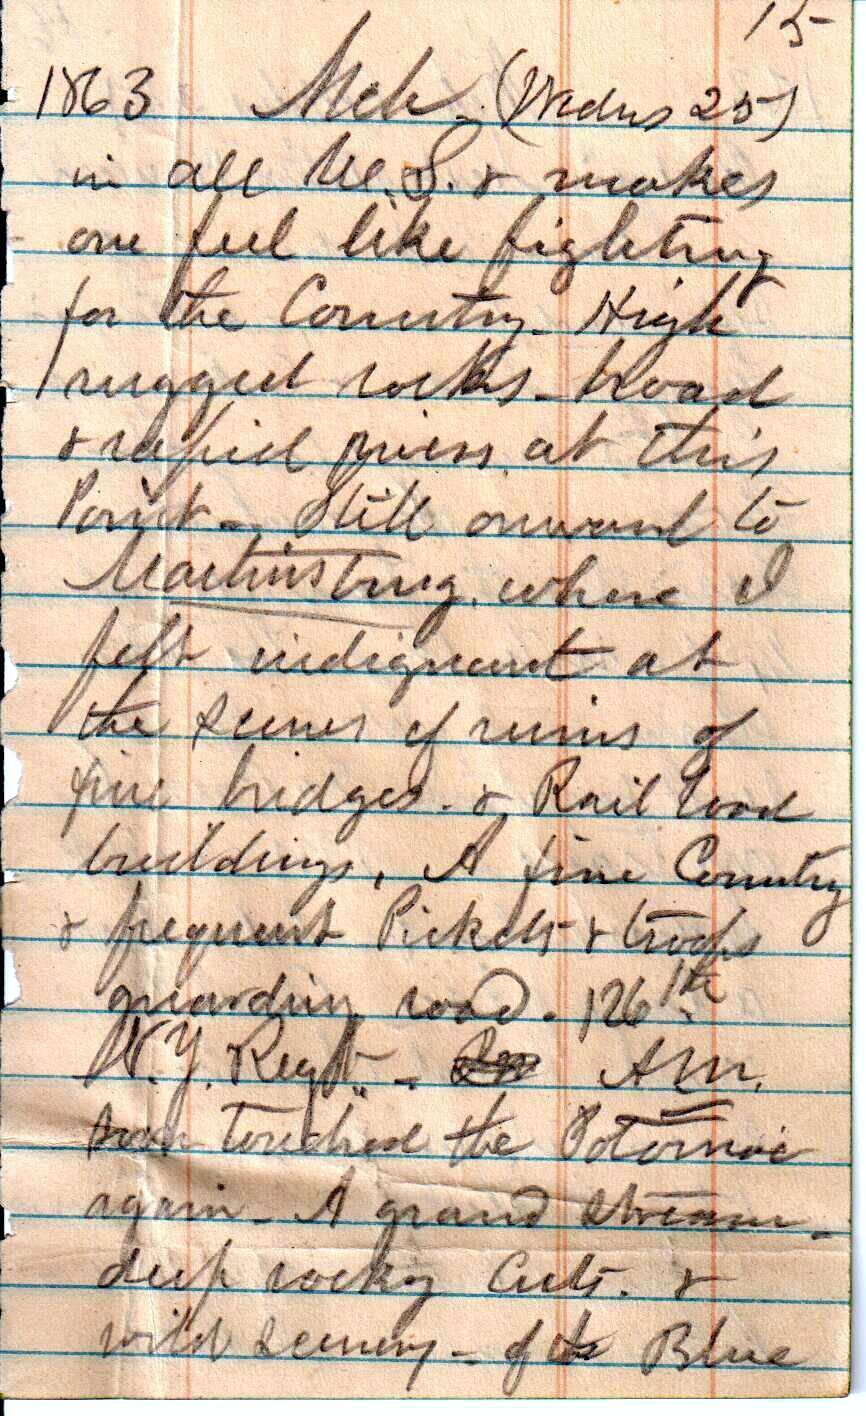 15
1863 Mch. (Wedns 25)
in all U.S. & makes
one feel like fighting
for the Country - High
rugged rocks - broad
& rapid rivers at this
Point - Still onward to
Martinsburg, where I
felt indignant at
the scenes of ruins of
fine bridges - & Rail road
buildings, A fine Country
& frequent Pickets & troops
guarding road. 126th
N.Y. Regt. - AM.
soon touched the Potomac
again - A grand stream -
deep rocky Cuts. &
wild scenery - of the Blue